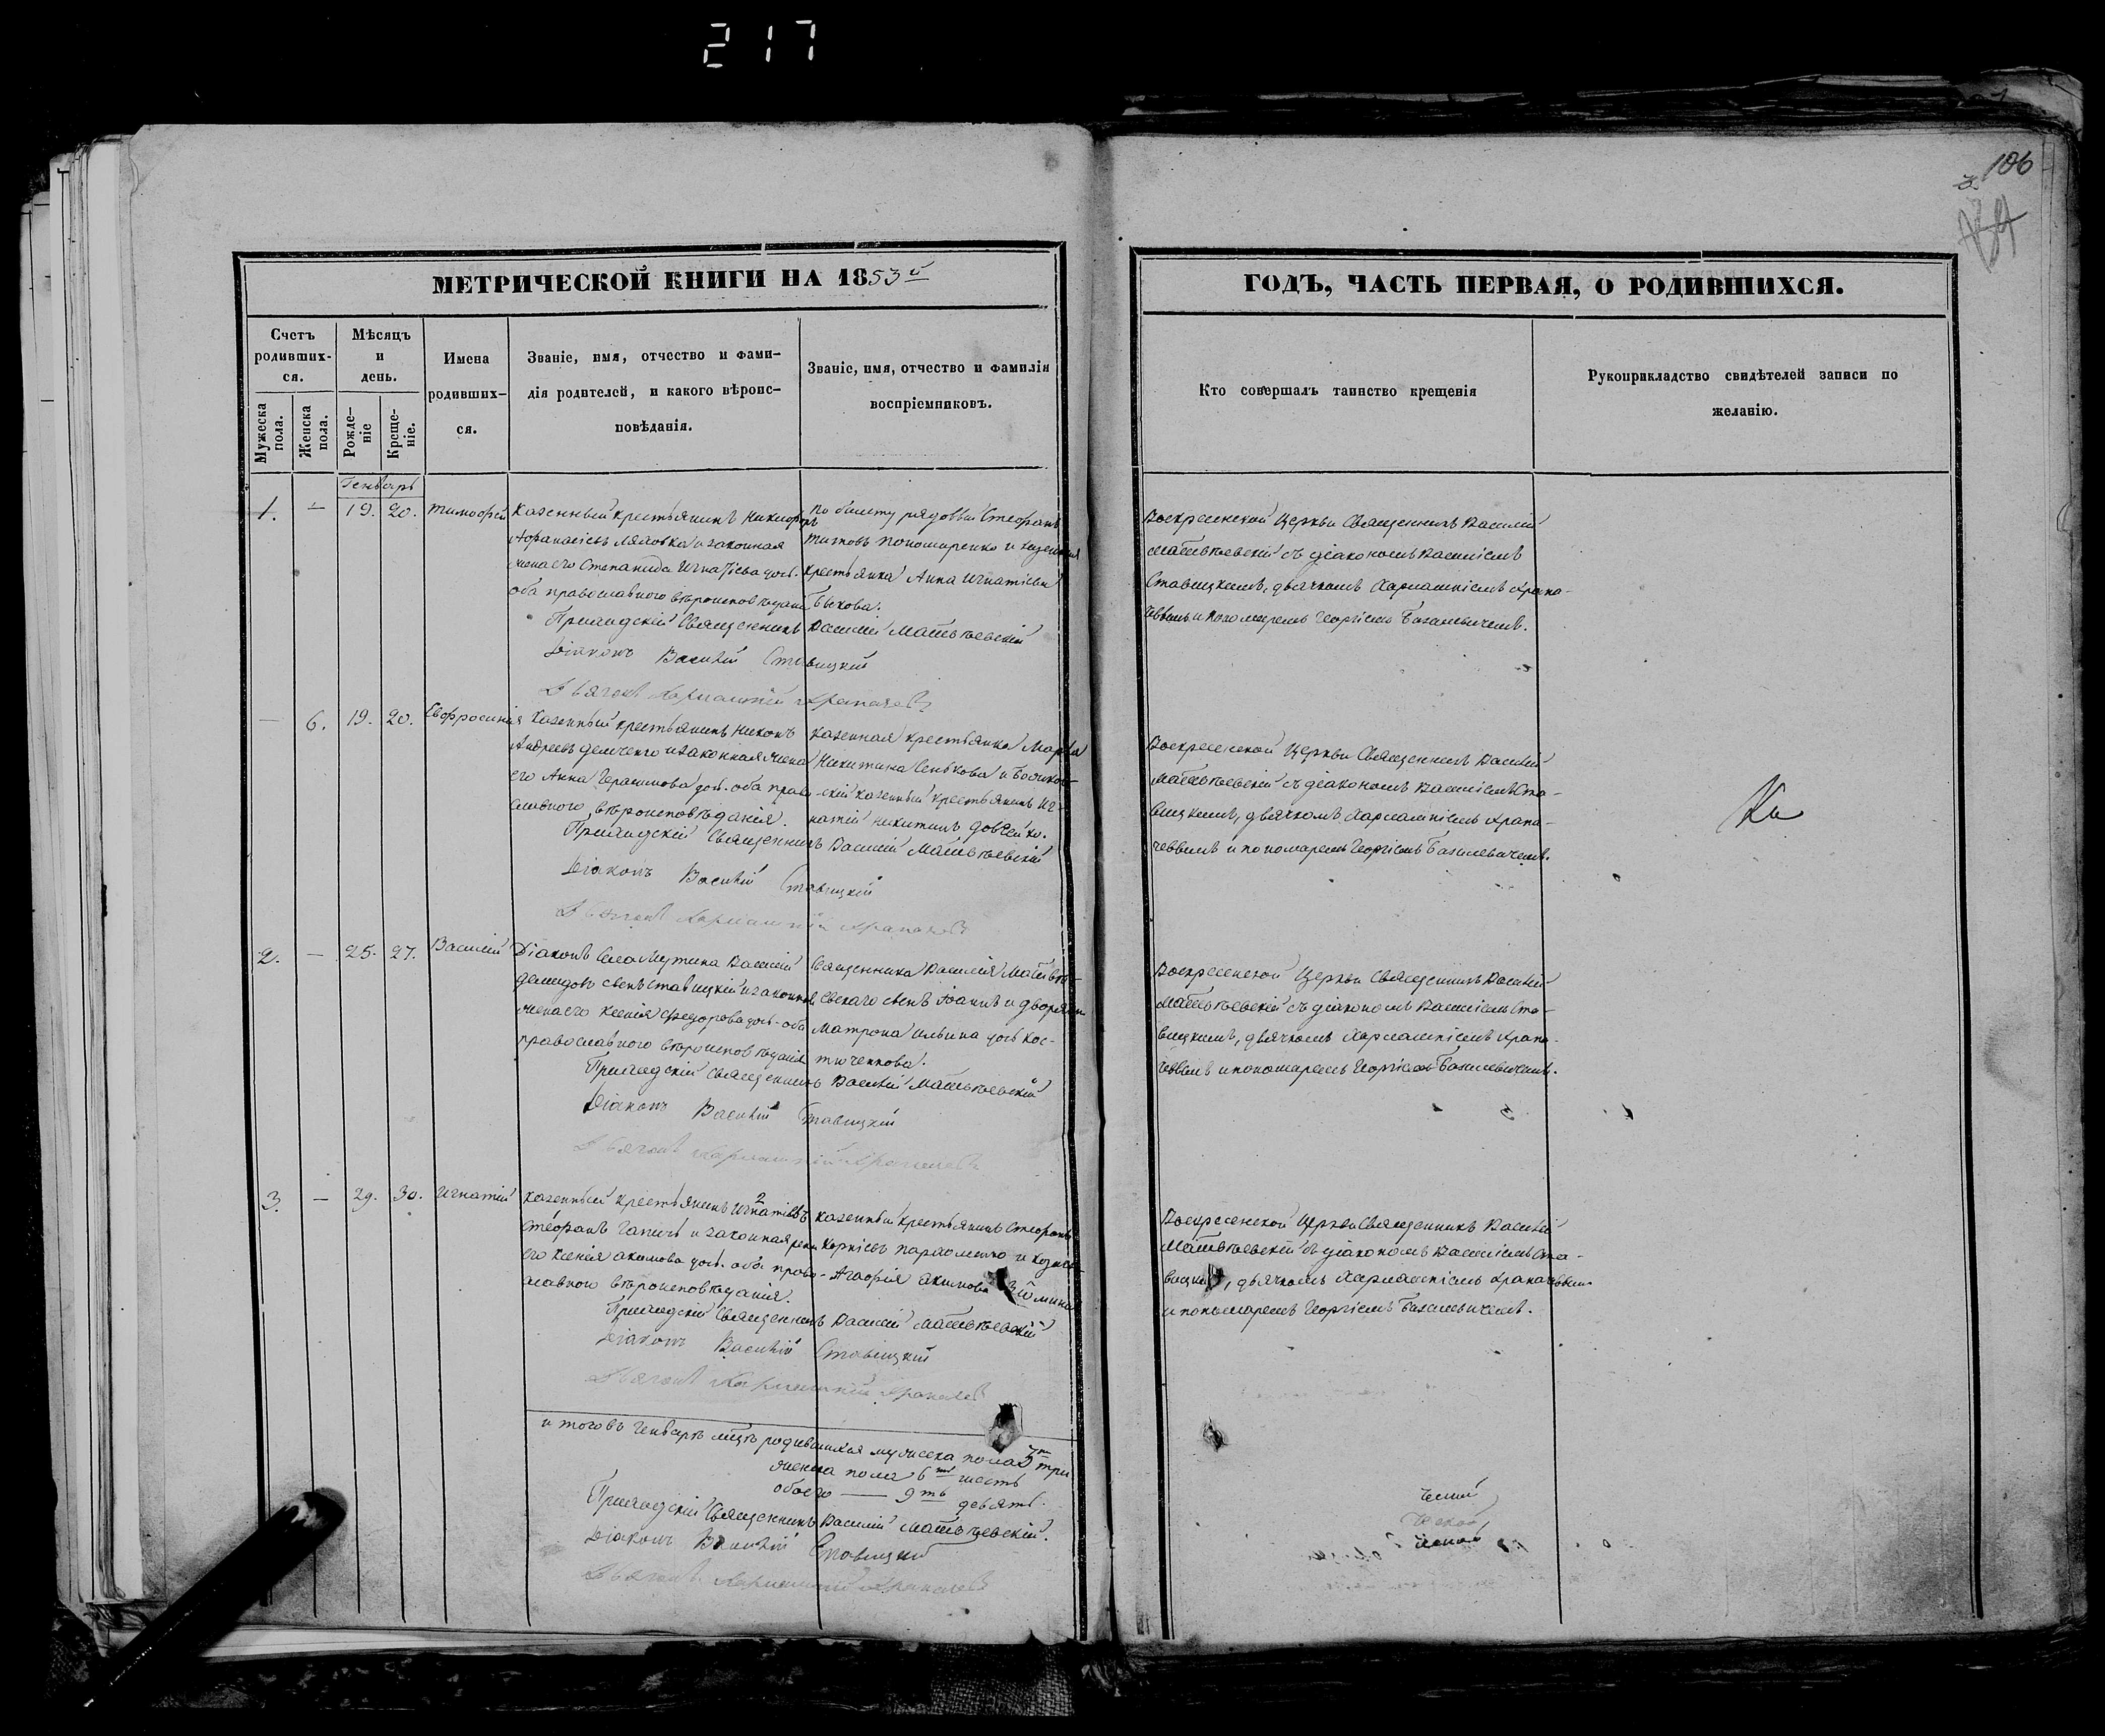 217
106
МЕТРИЧЕСКОЙ КНИГИ НА 1853й
Счетъ родивших-ся.
Мужеска пола.
Женска пола.
Мѣсяцъ и день.
Рожде-ніе
Креще-ніе.
Имена родивших-ся.
Званіе, имя, отчество и фами-
лія родителей, и какого вѣроис-
повѣданія.
Званіе, имя, отчество и фамилія
воспріемниковъ.
ГОДЪ, ЧАСТЬ ПЕРВАЯ, О РОДИВШИХСЯ.
Кто совершалъ таинство крещенія
Рукоприкладство свидѣтелей записи по
желанію.
Генварь
1. — 19. 20. Тимофей
Казенный крестьянинъ Никифоръ
Афанасіевъ Лядовка и законная
жена его Степанида Игнатіева доч.
оба православного вѣроисповѣданія
По билету рядовый Стефанъ
Титовъ Пономаренко и казенная
крестьянка Анна Игнатіева
Быкова.
Приходскій Священникъ Василій Матвѣевскій
Діаконъ Василій Ставицкій
Дьячокъ Харлампій
Воскресенской Церкви Священникъ Василій
Матвѣевскій съ діакономъ Василіемъ
Ставицкимъ, дьячкомъ Харлампіемъ Храпа-
чевымъ и пономаремъ Георгіемъ Базилевичемъ.
— 6. 19. 20. Евфросинія
Казенный крестьянинъ Никонъ
Андреевъ Демченко и законная жена
его Анна Герасимова доч. оба право-
славного вѣроисповѣданія.
Казенная крестьянка Марѳа
Никитина Сенькова и
скій казенный крестьянинъ Иг-
натій Никитинъ
Приходскій Священникъ Василій Матвѣевскій
Діаконъ Василій Ставицкій
Дьячокъ Харлампій
Воскресенской Церкви Священникъ Василій
Матвѣевскій съ діакономъ Василіемъ Ста-
вицкимъ, дьячкомъ Харлампіемъ Храпа-
чевымъ и пономаремъ Георгіемъ Базилевичемъ.
2. — 25. 27. Василій
Діаконъ села Мутина Василій
Демидовъ сынъ Ставицкій и законная
жена его Ксенія Федорова доч. оба
православного вѣроисповѣданія
Священника Василія Матвѣе-
вскаго сынъ Іоаннъ и дворянка
Матрона Ильина доч Кос-
тюченкова.
Приходскій Священникъ Василій Матвѣевскій
Діаконъ Василій Ставицкій
Дьячокъ Харлампій
Воскресенской Церкви Священникъ Василій
Матвѣевскій съ діакономъ Василіемъ Ста-
вицкимъ, дьячкомъ Харлампіемъ Храпа-
чевымъ и пономаремъ Георгіемъ Базилевичемъ.
3. — 29. 30. Игнатій
Казенный крестьянинъ Игнатіевъ
Стефанъ и законная жена
его Ксенія Акимова доч. оба право-
славного вѣроисповѣданія.
Казенный крестьянинъ Стефанъ
Корніевъ и
Агафія Акимова
Приходскій Священникъ Василій Матвѣевскій
Діаконъ Василій Ставицкій
Дьячокъ Харлампій
Воскресенской Церкви Священникъ Василій
Матвѣевскій съ діакономъ Василіемъ Ста-
вицкимъ, дьячкомъ Харлампіемъ Храпачевымъ
и пономаремъ Георгіемъ Базилевичемъ.
итого въ Генварѣ мцѣ родившихся мужеска пола 3 три
женска пола 6ть шесть
обоего — 9ть девять.
Приходскій Священникъ Василій Матвѣевскій.
Діаконъ Василій Ставицкій
Дьячокъ Харлампій